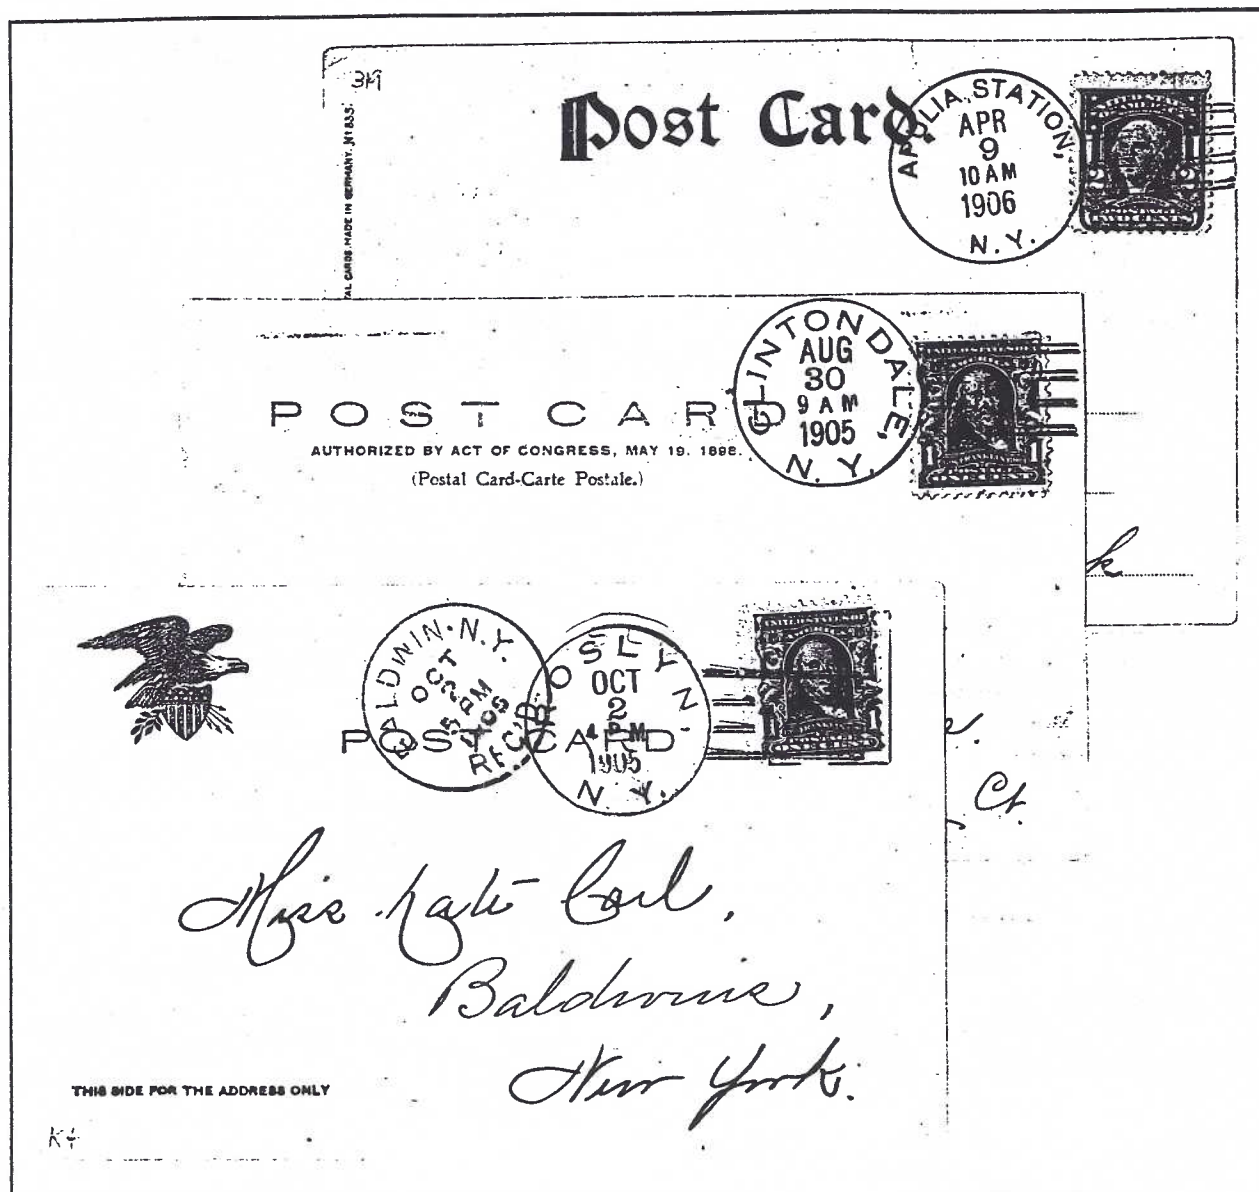 3M
Post Card.
TAL CARDS. MADE IN GERMANY. N1835.
APULIA STATION,
APR
9
10 AM
1906
N.Y.
POST CARD
AUTHORIZED BY ACT OF CONGRESS, MAY 19. 1898.
(Postal Card-Carte Postale.)
CLINTONDALE,
AUG
30
9 AM
1905
N. Y.
ONE CENT
k
Ct.
BALDWIN. N.Y.
OCT
2
5 PM
REC'D.
ROSLYN,
OCT
2
4 PM
1905
N. Y.
POST CARD
Miss Kate Carl,
Baldwins,
New York.
THIS SIDE FOR THE ADDRESS ONLY